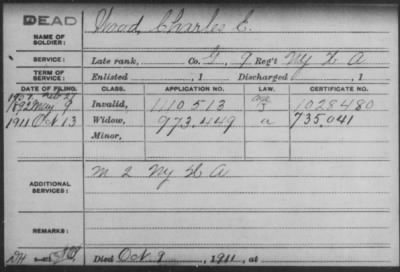 DEAD
NAME OF SOLDIER: Wood, Charles E.
SERVICE: Late rank, Co. G, 9 Reg't NY H A
TERM OF SERVICE: Enlisted , 1 Discharged , 1
DATE OF FILING. CLASS. APPLICATION NO. LAW. CERTIFICATE NO.
Feb 27
1892 May 9 Invalid, 1110513 1028480
1911 Oct 13 Widow, 973.449 a 735.041
Minor,
ADDITIONAL SERVICES: M 2 NY H A
REMARKS:
Died Oct. 9, 1911, at